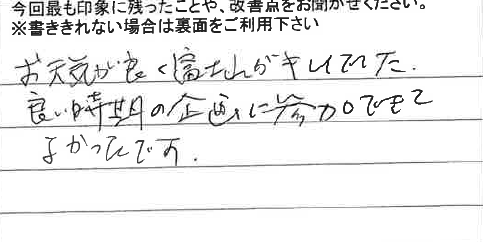 今回最も印象に残ったことや、改善点をお聞かせください。
※書ききれない場合は裏面をご利用下さい
お天気が良く富士山がキレイでした.
良い時期の企画に参加できて
よかったです.